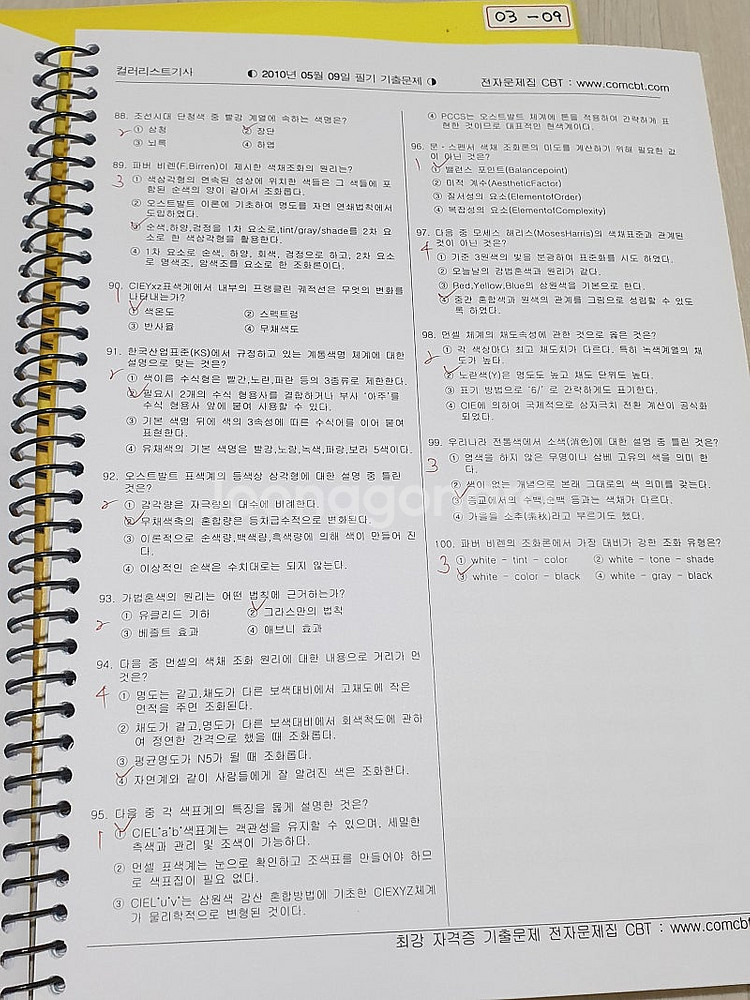 03 - 09
컬러리스트기사
◐ 2010년 05월 09일 필기 기출문제 ◑
전자문제집 CBT : www.comcbt.com
88. 조선시대 단청색 중 빨강 계열에 속하는 색명은?
2
① 삼청 ② 장단
③ 뇌록 ④ 하엽
89. 파버 비렌(F.Birren)이 제시한 색채조화의 원리는?
3
① 색삼각형의 연속된 선상에 위치한 색들은 그 색들에 포
함된 순색의 양이 같아서 조화롭다.
② 오스트발트 이론에 기초하여 명도를 자연 연쇄법칙에서
도입하였다.
③ 순색,하양,검정을 1차 요소로,tint/gray/shade를 2차 요
소로 한 색삼각형을 활용한다.
④ 1차 요소로 순색, 하양, 회색, 검정으로 하고, 2차 요소
로 명색조, 암색조를 요소로 한 조화론이다.
90. CIEYxz표색계에서 내부의 프랭클린 궤적선은 무엇의 변화를
나타내는가?
1
① 색온도 ② 스펙트럼
③ 반사율 ④ 무채색도
91. 한국산업표준(KS)에서 규정하고 있는 계통색명 체계에 대한
설명으로 맞는 것은?
2
① 색이름 수식형은 빨간,노란,파란 등의 3종류로 제한한다.
② 필요시 2개의 수식 형용사를 결합하거나 부사 '아주'를
수식 형용사 앞에 붙여 사용할 수 있다.
③ 기본 색명 뒤에 색의 3속성에 따른 수식어를 이어 붙여
표현한다.
④ 유채색의 기본 색명은 빨강,노랑,녹색,파랑,보라 5색이다.
92. 오스트발트 표색계의 등색상 삼각형에 대한 설명 중 틀린
것은?
2
① 감각량은 자극량의 대수에 비례한다.
② 무채색축의 혼합량은 등차급수적으로 변화된다.
③ 이론적으로 순색량,백색량,흑색량에 의해 색이 만들어 진
다.
④ 이상적인 순색은 수치대로는 되지 않는다.
93. 가법혼색의 원리는 어떤 법칙에 근거하는가?
2
① 유클리드 기하 ② 그라스만의 법칙
③ 베졸트 효과 ④ 애브니 효과
94. 다음 중 먼셀의 색채 조화 원리에 대한 내용으로 거리가 먼
것은?
4
① 명도는 같고,채도가 다른 보색대비에서 고채도에 작은
면적을 주면 조화된다.
② 채도가 같고,명도가 다른 보색대비에서 회색척도에 관하
여 정연한 간격으로 했을 때 조화롭다.
③ 평균명도가 N5가 될 때 조화롭다.
④ 자연계와 같이 사람들에게 잘 알려진 색은 조화한다.
95. 다음 중 각 색표계의 특징을 옳게 설명한 것은?
1
① CIEL*a*b*색표계는 객관성을 유지할 수 있으며, 세밀한
측색과 관리 및 조색이 가능하다.
② 먼셀 표색계는 눈으로 확인하고 조색표를 만들어야 하므
로 색표집이 필요 없다.
③ CIEL*u*v*는 삼원색 감산 혼합방법에 기초한 CIEXYZ체계
가 물리학적으로 변형된 것이다.
④ PCCS는 오스트발트 체계에 톤을 적용하여 간략하게 표
현한 것이므로 대표적인 현색계이다.
96. 문·스펜서 색채 조화론의 미도를 계산하기 위해 필요한 값
이 아닌 것은?
1
① 밸런스 포인트(Balancepoint)
② 미적 계수(AestheticFactor)
③ 질서성의 요소(ElementofOrder)
④ 복잡성의 요소(ElementofComplexity)
97. 다음 중 모세스 해리스(MosesHarris)의 색채표준과 관계된
것이 아닌 것은?
4
① 기준 3원색의 빛을 분광하여 표준화를 시도 하였다.
② 오늘날의 감법혼색과 원리가 같다.
③ Red,Yellow,Blue의 삼원색을 기본으로 한다.
④ 중간 혼합색과 원색의 관계를 그림으로 성립할 수 있도
록 하였다.
98. 먼셀 체계의 채도속성에 관한 것으로 옳은 것은?
2
① 각 색상마다 최고 채도치가 다르다. 특히 녹색계열의 채
도가 높다.
② 노란색(Y)은 명도도 높고 채도 단위도 높다.
③ 표기 방법으로 '6/' 로 간략하게도 표기한다.
④ CIE에 의하여 국제적으로 삼자극치 전환 계산이 공식화
되었다.
99. 우리나라 전통색에서 소색(消色)에 대한 설명 중 틀린 것은?
3
① 염색을 하지 않은 무명이나 삼베 고유의 색을 의미 한
다.
② 색이 없는 개념으로 본래 그대로의 색 의미를 갖는다.
③ 종교에서의 수백,순백 등과는 색채가 다르다.
④ 가을을 소추(素秋)라고 부르기도 했다.
100. 파버 비렌의 조화론에서 가장 대비가 강한 조화 유형은?
3
① white - tint - color ② white - tone - shade
③ white - color - black ④ white - gray - black
최강 자격증 기출문제 전자문제집 CBT : www.comcbt